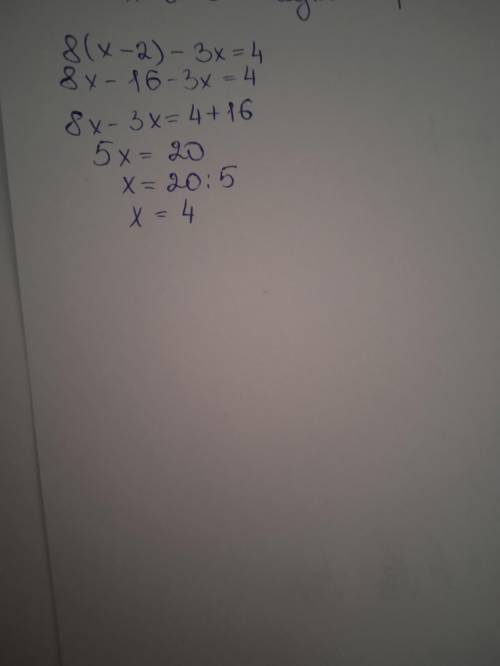 8(x-2)-3x=4
8x-16-3x=4
8x-3x=4+16
5x=20
x=20:5
x=4